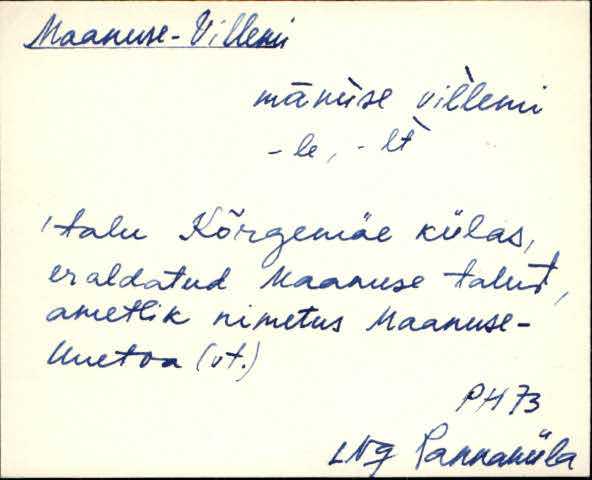 Maanuse-Villemi
mānùse vìl̀lemi
- le, - lt̀
'talu Kõrgemäe külas,
eraldatud Maanuse talust,
ametlik nimetus Maanuse-
Uuetoa (vt.)
PH 73
LNg Pannaküla